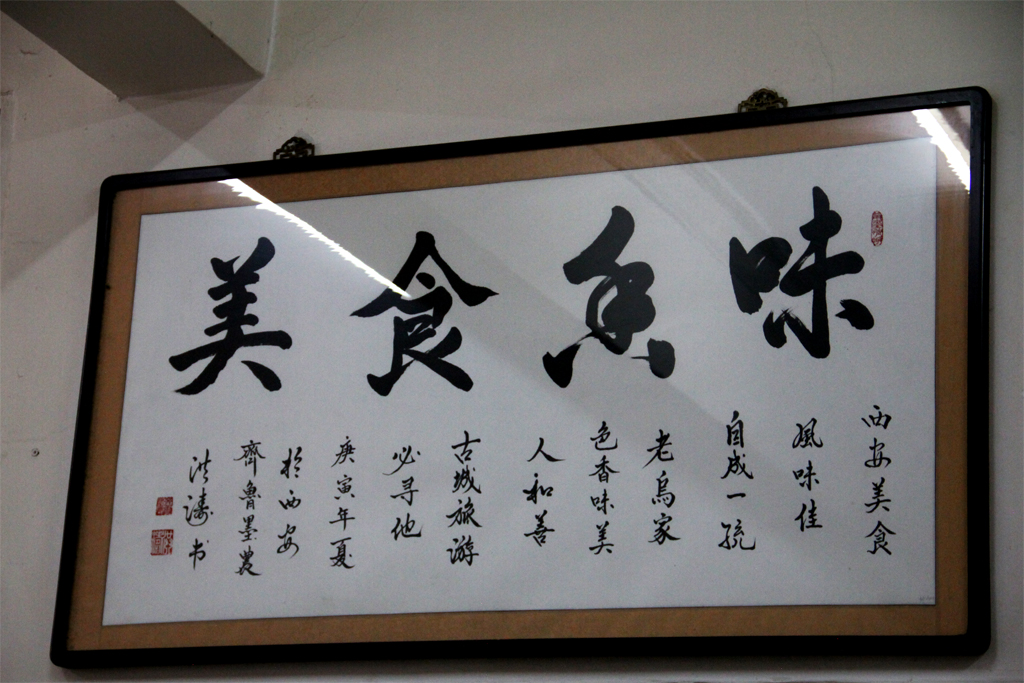 味食美
西安美食
風味佳
自成一
老烏家
色香味美
人和善
古城旅游
必寻他
庚寅年夏
於西安
齊魯墨农
洪濤书